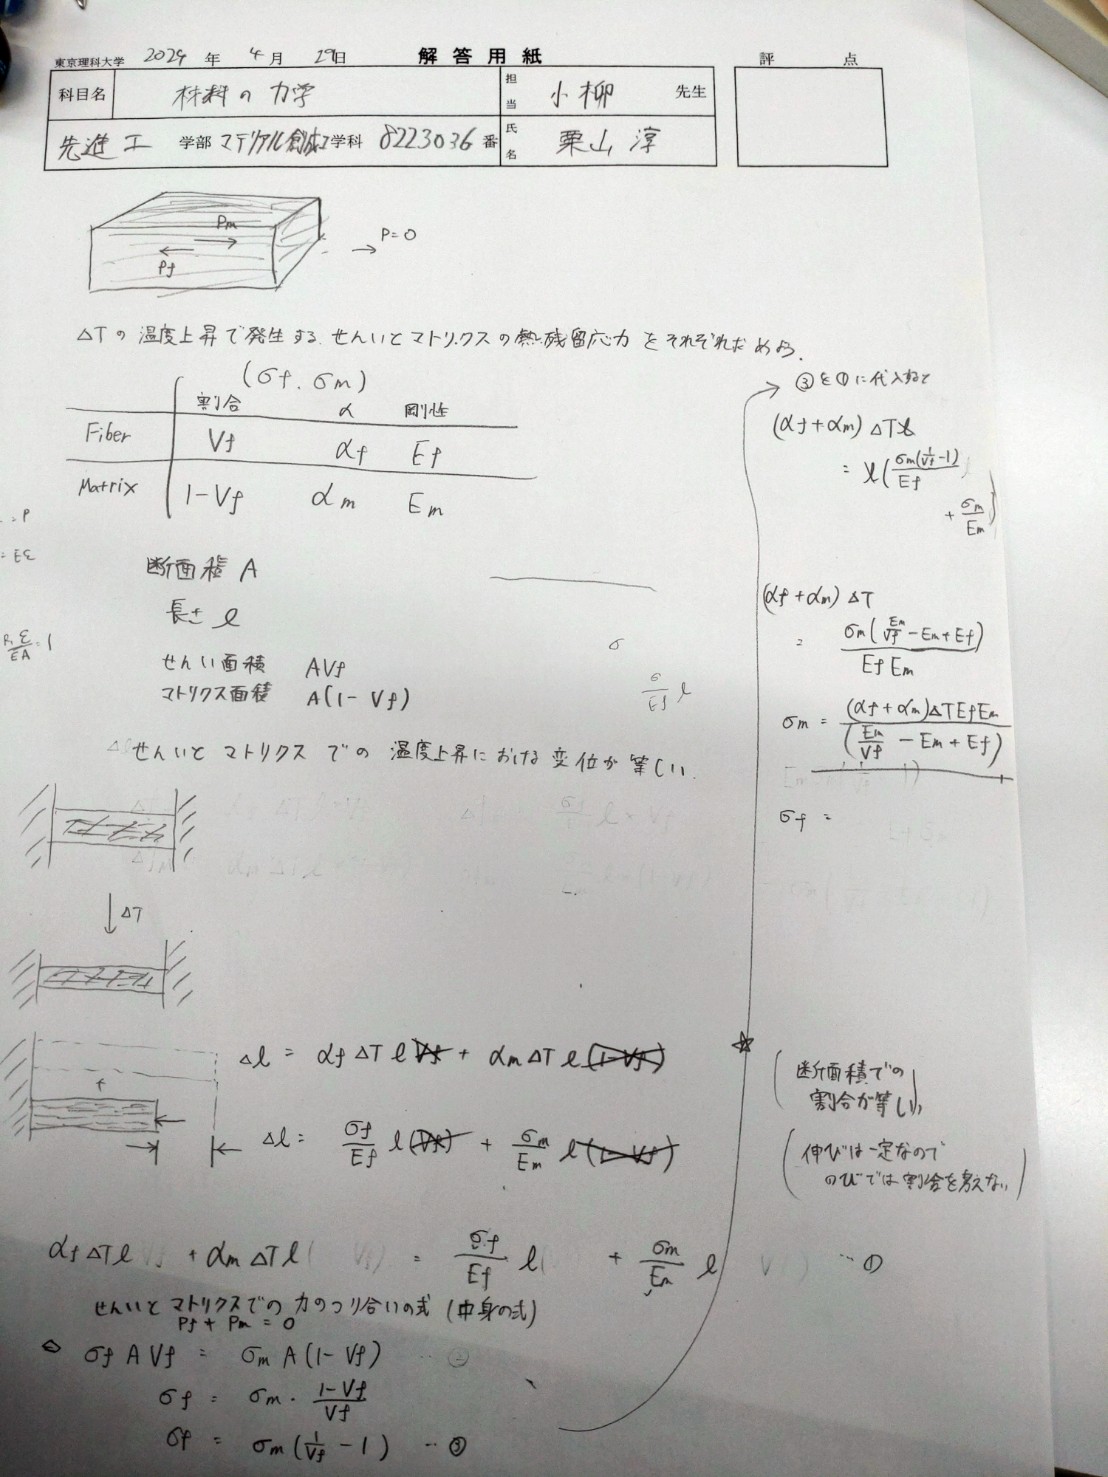 東京理科大学 2024 年 4 月 29日 解答用紙 評 点
科目名 材料の力学 担当 小柳 先生
先進工 学部 マテリアル創成工学科 8223036 番 氏名 栗山 淳
Pm
Pf
P=0
ΔTの温度上昇で発生する、せんいとマトリクスの熱残留応力をそれぞれだめよ.
(σf. σm)
割合 α 剛性
Fiber Vf αf Ef
Matrix 1-Vf αm Em
= P
= Eε
断面積 A
長さ l
せんい面積 AVf
マトリクス面積 A(1-Vf)
σ
σ/Ef l
せんいとマトリクスでの温度上昇における変位が等しい.
↓ΔT
Δl = αf ΔT l Vf + αm ΔT l (1-Vf)
f
Δl = σf/Ef l (Vf) + σm/Em l (1-Vf)
αf ΔT l + αm ΔT l = σf/Ef l + σm/Em l …①
せんいとマトリクスでの力のつり合いの式 (中身の式)
Pf + Pm = 0
σf A Vf = σm A (1-Vf) …②
σf = σm · (1-Vf)/Vf
σf = σm (1/Vf - 1) …③
③を①に代入すると
(αf+αm) ΔT l
= l (σm(1/Vf-1)/Ef
+ σm/Em)
(αf+αm) ΔT
= σm(Em/Vf - Em + Ef)/(Ef Em)
σm = (αf+αm)ΔT Ef Em/(Em/Vf - Em + Ef)
σf =
(断面積での
割合が等しい)
(伸びは一定なので
のびでは割合を考えない)